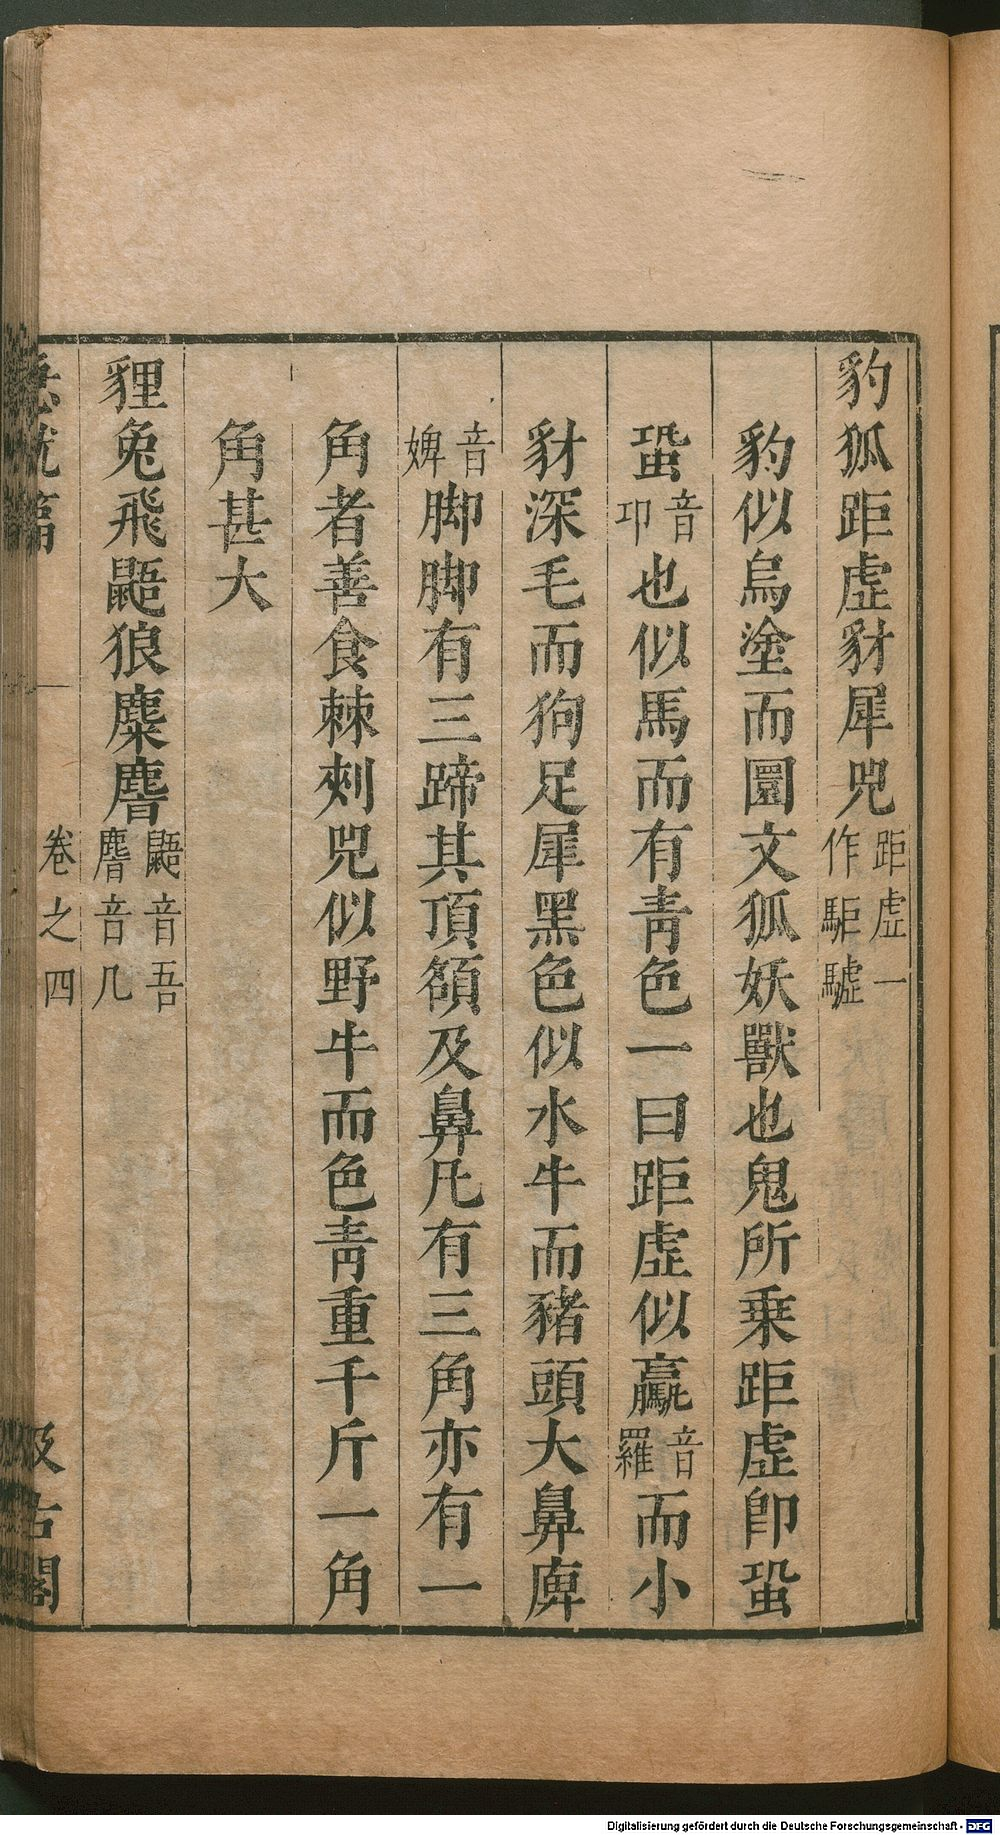 豹狐距虛豺犀兕距虛一作駏驉
豹似烏塗而圜文狐妖獸也鬼所乗距虛卽蛩
蛩音卭也似馬而有靑色一曰距虛似驘音羅而小
豺深毛而狗足犀黑色似水牛而豬頭大鼻庳
音婢脚脚有三蹄其頂頟及鼻凡有三角亦有一
角者善食棘刺兕似野牛而色靑重千斤一角
角甚大
貍兔飛鼯狼麋麐鼯音吾麐音几
急就篇
卷之四
汲古閣
Digitalisierung gefördert durch die Deutsche Forschungsgemeinschaft - DFG